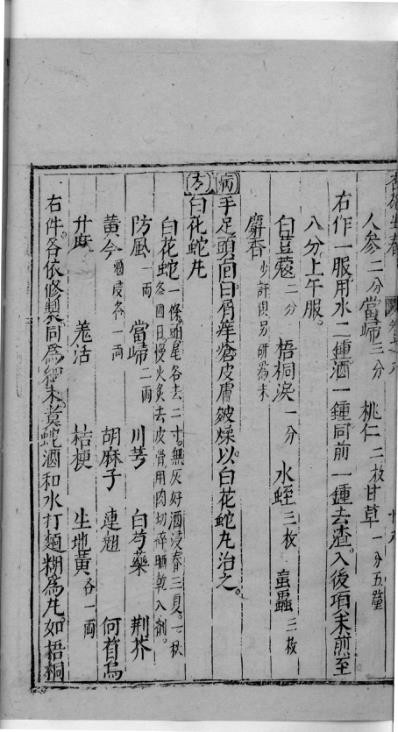 人參二分當歸三分　桃仁二枚甘草一分五釐
右作一服用水二鍾酒一鍾同煎一鍾去渣入後項末煎至
八分上午服
白荳蔻二分　梧桐淚一分　水蛭三枚　䖟蟲三枚
麝香少許俱另研為末
病手足頭面白屑痒瘡皮膚皴燥以白花蛇丸治之
方白花蛇丸
白花蛇一條頭尾各去二寸無灰好酒浸春三夏二秋冬四日慢火炙去皮骨用肉切碎晒乾入劑
防風一兩　當歸二兩　川芎　白芍藥　荊芥
黃今酒皮各一兩　胡麻子　連翹　何首烏
升麻　羗活　桔梗　生地黃各一兩
右件各依修製同為細末煑蛇酒和水打麵糊為丸如梧桐